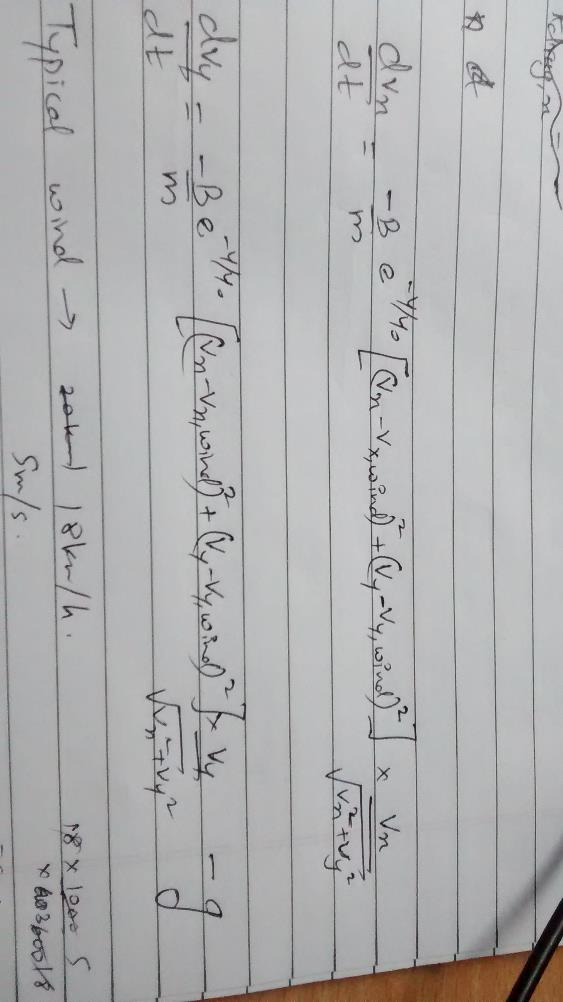 dvx/dt = -B/m e^-y/y₀ [(Vx-Vx,wind)² + (Vy-Vy,wind)²] × Vx/√Vx²+Vy²
dvy/dt = -B/m e^-y/y₀ [(Vx-Vx,wind)² + (Vy-Vy,wind)²] × Vy/√Vx²+Vy² - g
Typical wind → 20km 18km/h.
18 × 1000 5
5m/s.